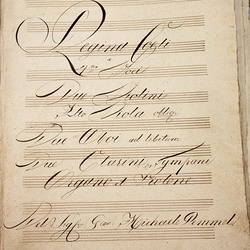 Regina Cœli
a
4tro Voci
Due Violini
Alto Viola oblig.
Due Oboi ad libitum
Due Clarini, Tympani
Organo et Violone
Del Sigre Giov. Michaele Demmel